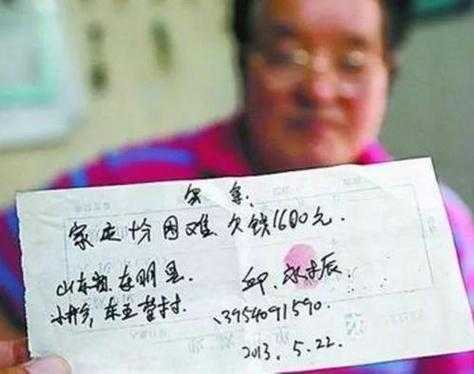 欠条:
家庭十分困难 欠钱1600元.
山东省东明县.
小井乡,东五营村.
邱
13954091590
2013.5.22.